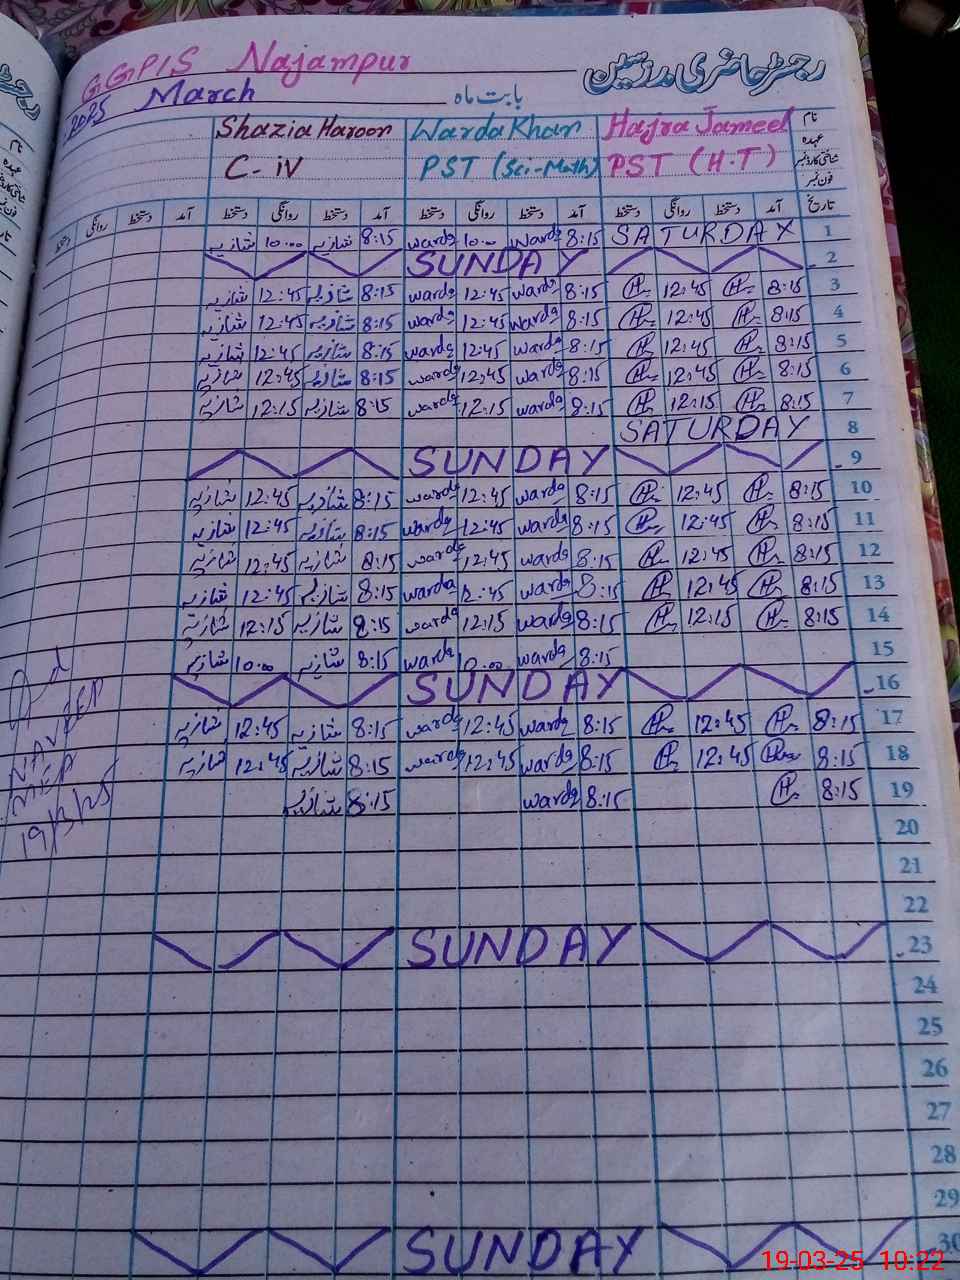 رجسٹر حاضری مدرسین
GGPIS Najampur
2025 March بابت ماہ
نام Hajra Jameel Warda Khan Shazia Haroon
عہدہ PST (H.T) PST (Sci-Math) C-iV
شناختی کارڈ نمبر
فون نمبر
تاریخ آمد دستخط روانگی دستخط آمد دستخط روانگی دستخط آمد دستخط روانگی دستخط آمد دستخط روانگی دستخط
1 SATURDAY 8:15 warda 10:00 warda 8:15 شازیہ 10:00 شازیہ
2 SUNDAY
3 8:15 H 12:45 H 8:15 warda 12:45 warda 8:15 شازیہ 12:45 شازیہ
4 8:15 H 12:45 H 8:15 warda 12:45 warda 8:15 شازیہ 12:45 شازیہ
5 8:15 H 12:45 H 8:15 warda 12:45 warda 8:15 شازیہ 12:45 شازیہ
6 8:15 H 12:45 H 8:15 warda 12:45 warda 8:15 شازیہ 12:45 شازیہ
7 8:15 H 12:15 H 8:15 warda 12:15 warda 8:15 شازیہ 12:15 شازیہ
8 SATURDAY
9 SUNDAY
10 8:15 H 12:45 H 8:15 warda 12:45 warda 8:15 شازیہ 12:45 شازیہ
11 8:15 H 12:45 H 8:15 warda 12:45 warda 8:15 شازیہ 12:45 شازیہ
12 8:15 H 12:45 H 8:15 warda 12:45 warda 8:15 شازیہ 12:45 شازیہ
13 8:15 H 12:45 H 8:15 warda 12:45 warda 8:15 شازیہ 12:45 شازیہ
14 8:15 H 12:15 H 8:15 warda 12:15 warda 8:15 شازیہ 12:15 شازیہ
15 8:15 warda 10:00 warda 8:15 شازیہ 10:00 شازیہ
16 SUNDAY
17 8:15 H 12:45 H 8:15 warda 12:45 warda 8:15 شازیہ 12:45 شازیہ
18 8:15 H 12:45 H 8:15 warda 12:45 warda 8:15 شازیہ 12:45 شازیہ
19 8:15 H 8:15 warda 8:15 شازیہ
NAVEED
MEA
19/3/25
20
21
22
23 SUNDAY
24
25
26
27
28
29
30 SUNDAY
19-03-25 10:22